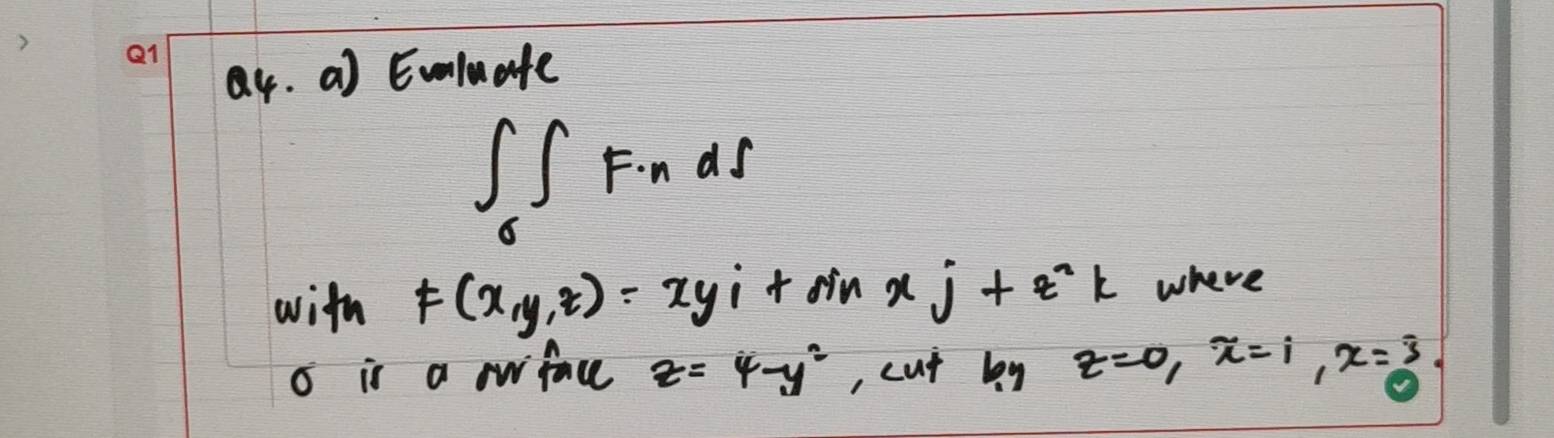 Q1
Q4. a) Evaluate
∫∫ F·n dS
σ
with F(x,y,z) = xyi + sin x j + z² k where
σ is a surface z = 4-y², cut by z=0, x=1, x=3.